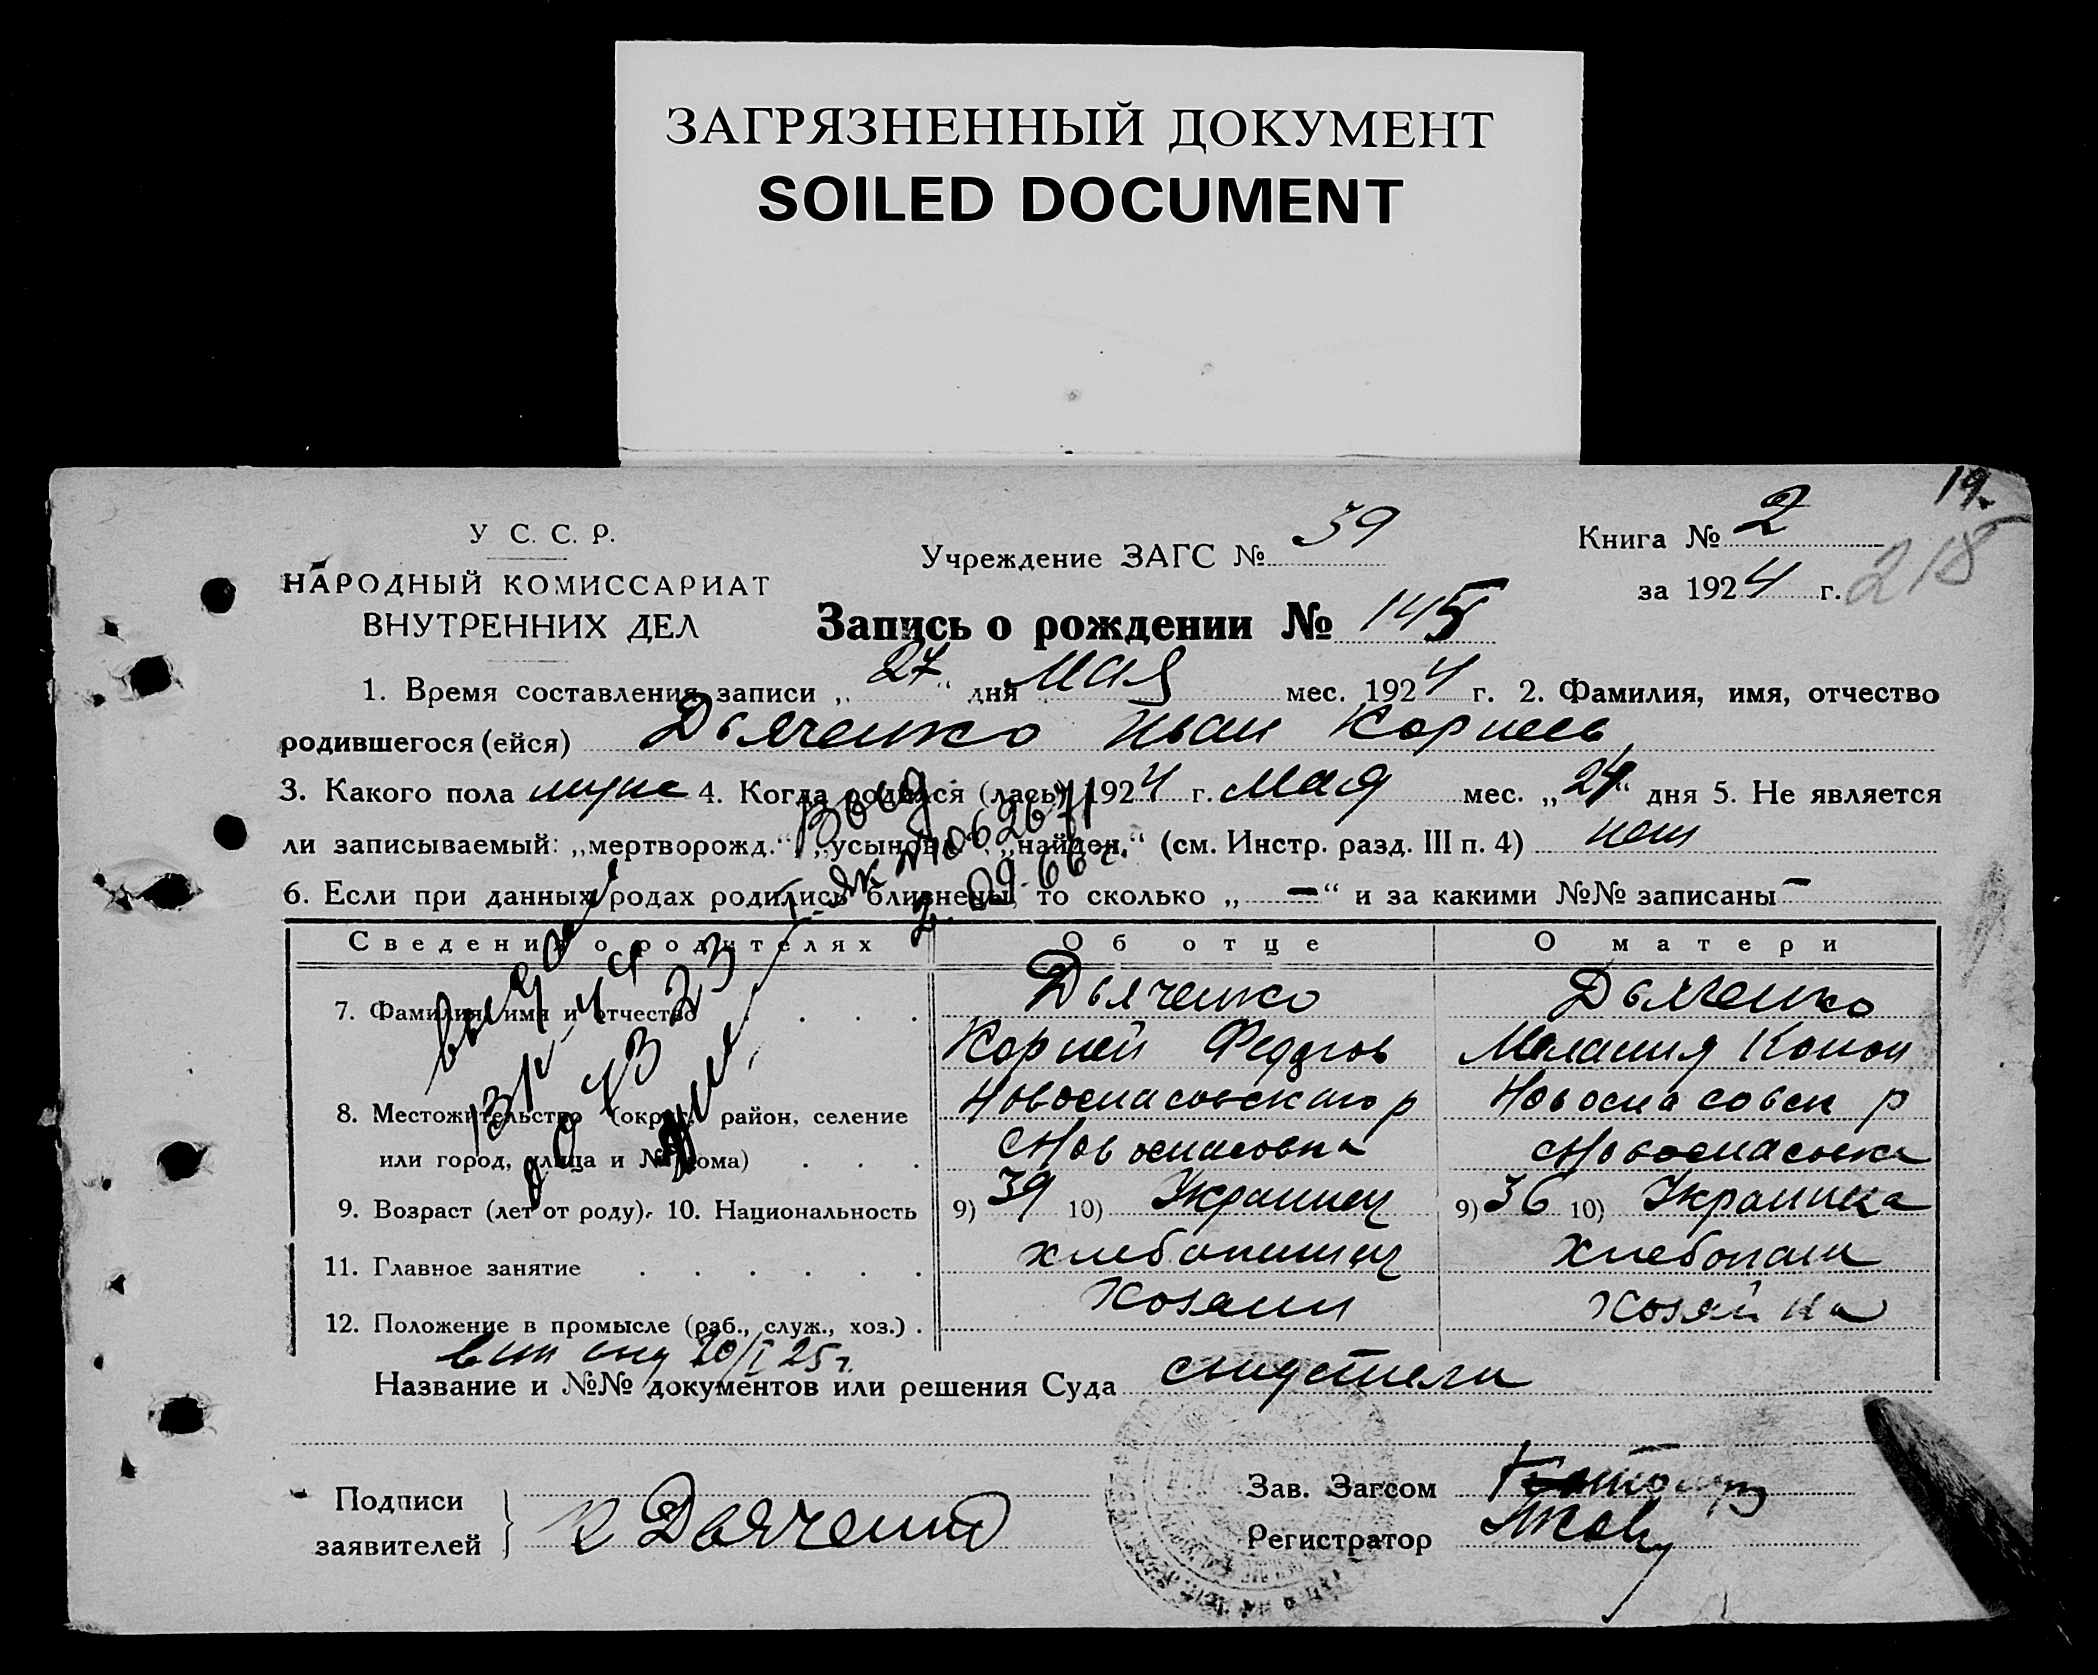 ЗАГРЯЗНЕННЫЙ ДОКУМЕНТ
SOILED DOCUMENT
19.
218
У С. С. Р.
НАРОДНЫЙ КОМИССАРИАТ
ВНУТРЕННИХ ДЕЛ
Учреждение ЗАГС № 39
Книга № 2
за 1924 г.
Запись о рождении № 145
1. Время составления записи „27“ дня мая мес. 1924 г. 2. Фамилия, имя, отчество
родившегося (ейся) Дьяченко Иван Корнеев
3. Какого пола мужс 4. Когда родился (лась) 1924 г. мая мес. „24“ дня 5. Не является
ли записываемый: „мертворожд.“, „усыновл.“, „найден.“ (см. Инстр. разд. III п. 4) нет
6. Если при данных родах родились близнецы, то сколько „—“ и за какими №№ записаны —
Сведения о родителях Об отце О матери
7. Фамилия, имя и отчество Дьяченко Дьяченко
Корней Федоров Мелания Конон
8. Местожительство (округ, район, селение Новоспасовского р Новоспасовск р
или город, улица и № дома) с Новоспасовка с Новоспасовка
9. Возраст (лет от роду). 10. Национальность 9) 39 10) Украинец 9) 36 10) Украинка
11. Главное занятие хлебопашец хлебопаш
12. Положение в промысле (раб., служ., хоз.) Хозяин хозяйка
20/I 25 г.
Название и №№ документов или решения Суда
Подписи
заявителей К Дьяченко
Зав. Загсом
Регистратор